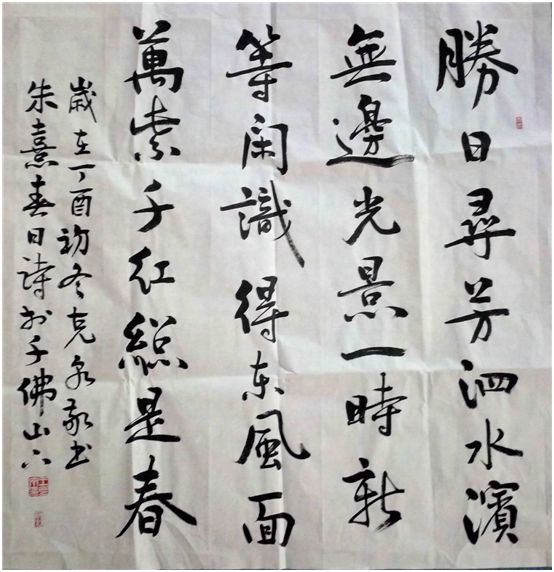 勝日尋芳泗水濱
無邊光景一時新
等闲識得东風面
萬紫千红総是春
歲在丁酉初冬克泉敬书
朱熹春日詩於千佛山下